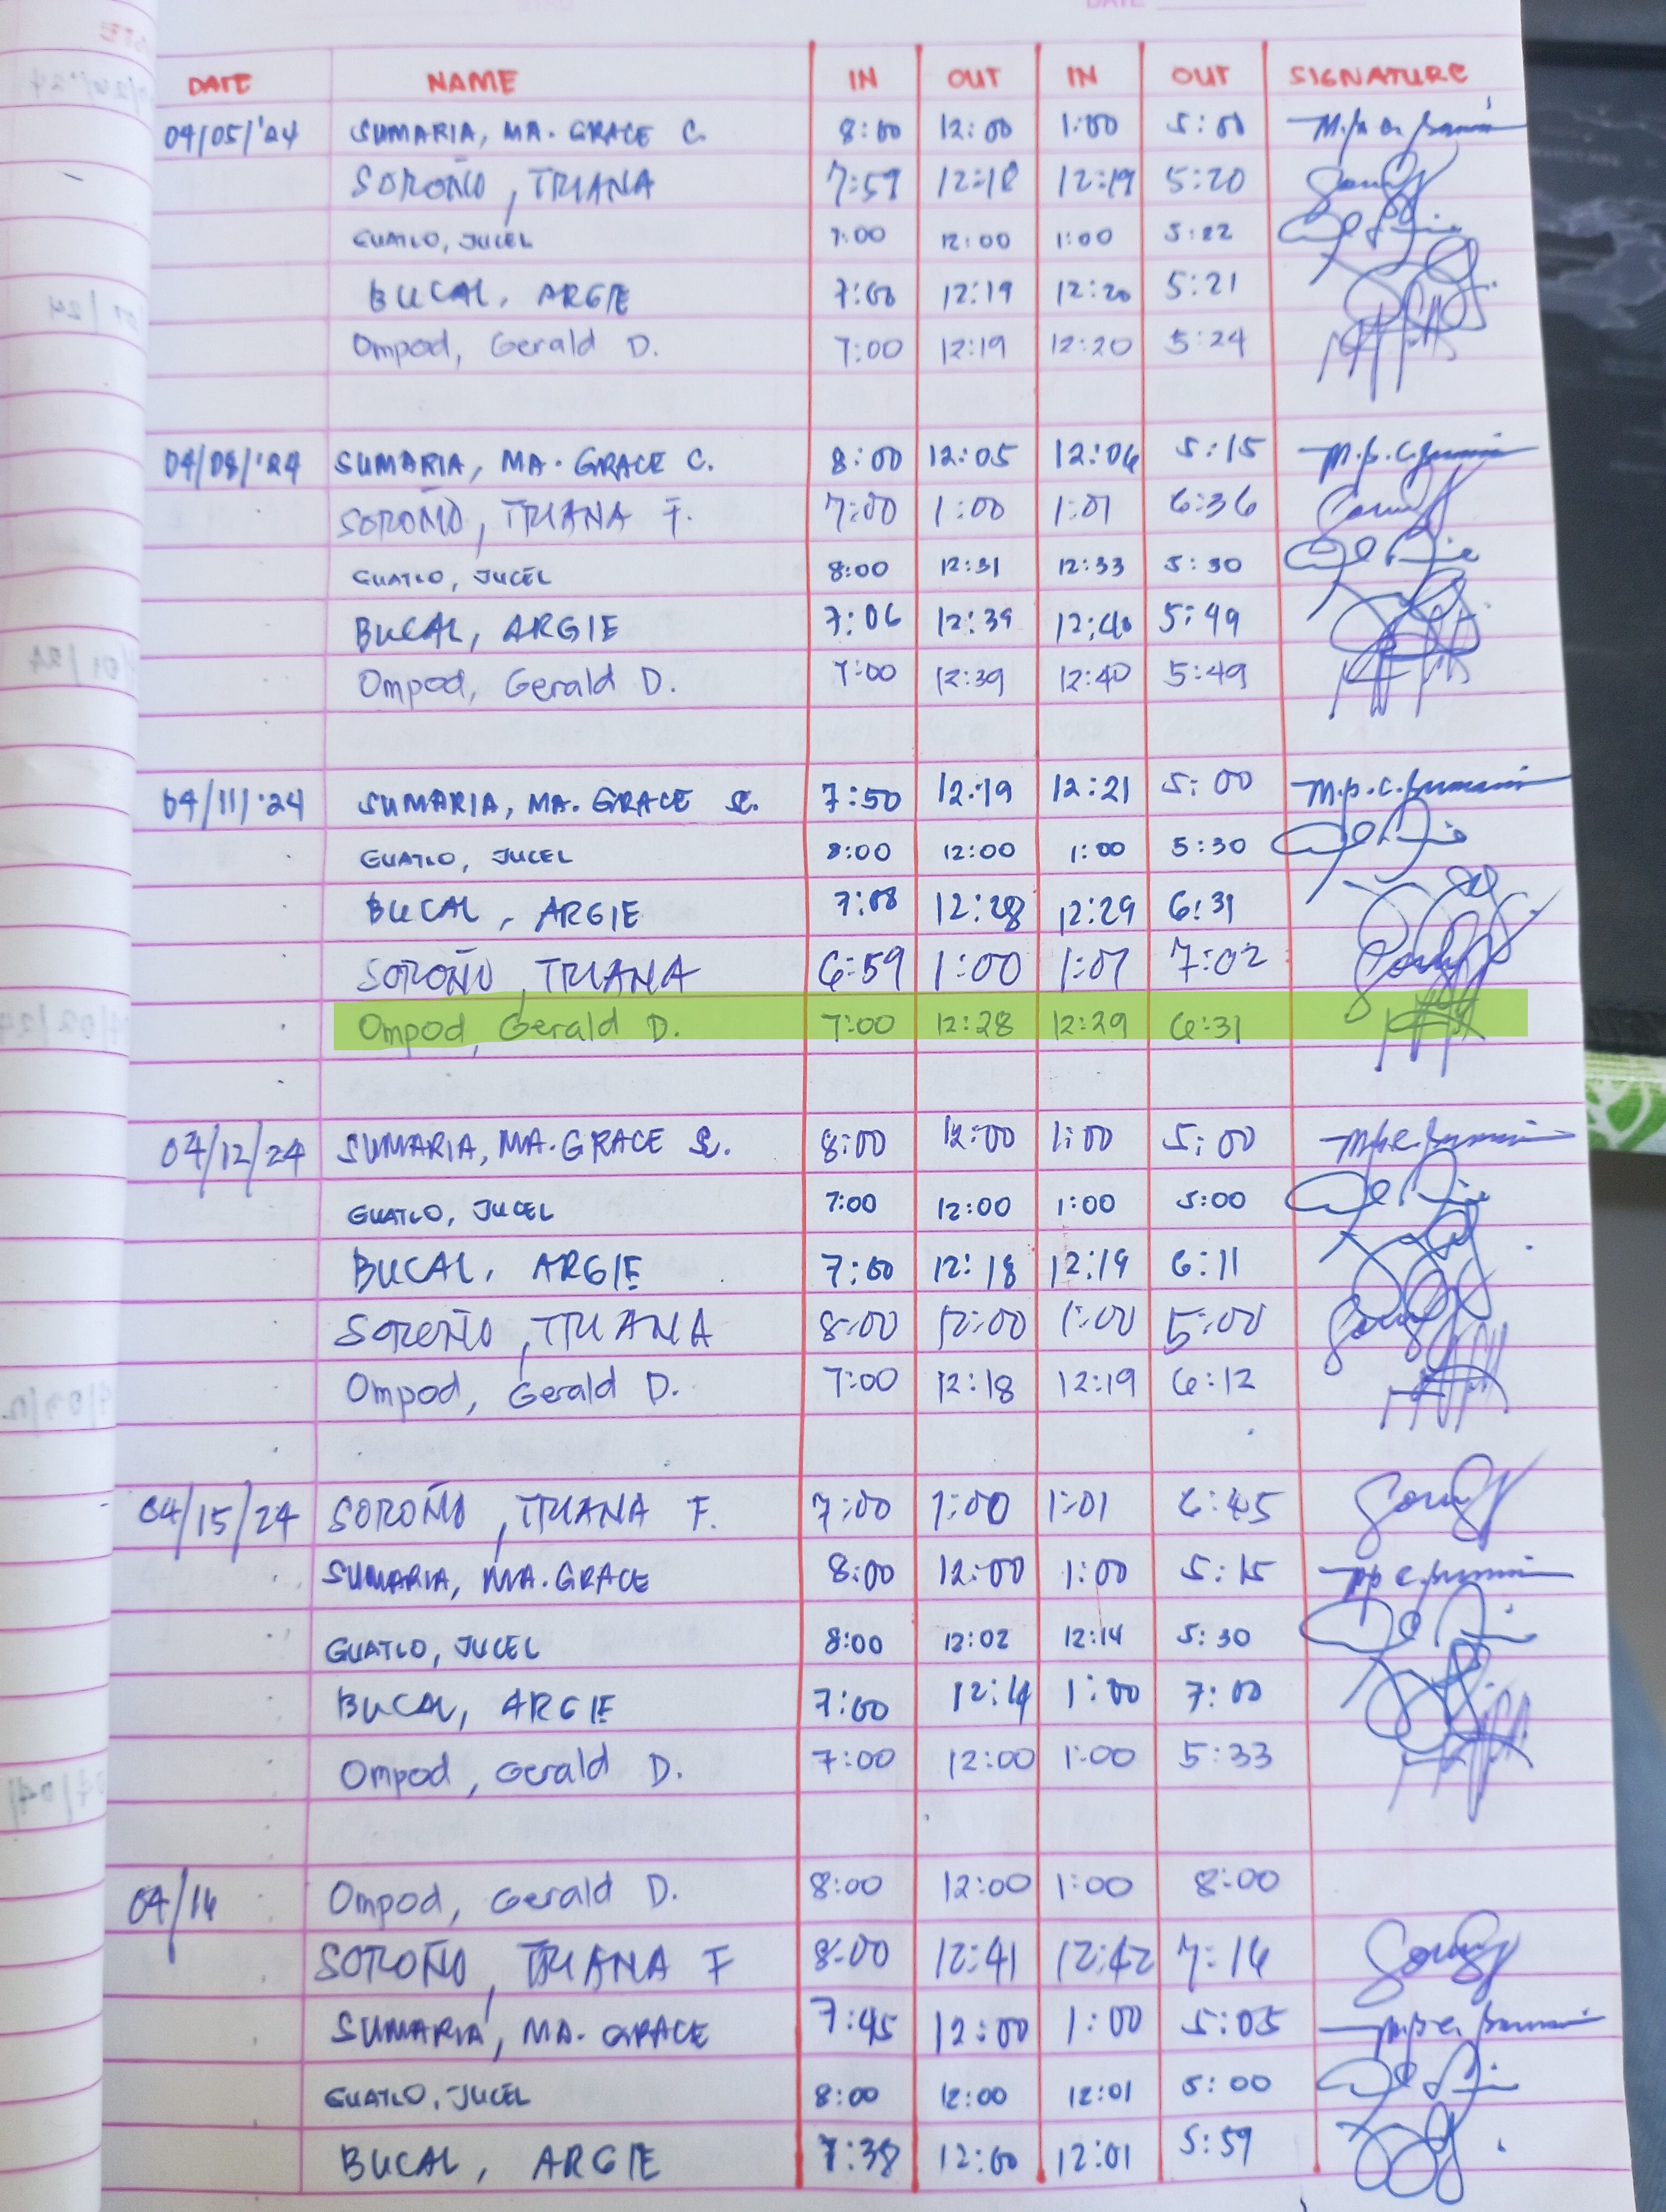 DATE
DATE NAME IN OUT IN OUT SIGNATURE
04/05/'24 SUMARIA, MA. GRACE C. 8:00 12:00 1:00 5:00
SOROÑO, TRIANA 7:59 12:18 12:19 5:20
GUATLO, JUCEL 7:00 12:00 1:00 5:22
BUCAL, ARGIE 7:00 12:19 12:20 5:21
Ompod, Gerald D. 7:00 12:19 12:20 5:24
04/08/'24 SUMARIA, MA. GRACE C. 8:00 12:05 12:06 5:15
SOROÑO, TRIANA F. 7:00 1:00 1:01 6:36
GUATLO, JUCEL 8:00 12:31 12:33 5:30
BUCAL, ARGIE 7:06 12:39 12:40 5:49
Ompod, Gerald D. 7:00 12:39 12:40 5:49
04/11/'24 SUMARIA, MA. GRACE C. 7:50 12:19 12:21 5:00
GUATLO, JUCEL 8:00 12:00 1:00 5:30
BUCAL, ARGIE 7:08 12:28 12:29 6:31
SOROÑO, TRIANA 6:59 1:00 1:01 7:02
Ompod, Gerald D. 7:00 12:28 12:29 6:31
04/12/24 SUMARIA, MA. GRACE C. 8:00 12:00 1:00 5:00
GUATLO, JUCEL 7:00 12:00 1:00 5:00
BUCAL, ARGIE 7:00 12:18 12:19 6:11
SOROÑO, TRIANA 8:00 12:00 1:00 5:00
Ompod, Gerald D. 7:00 12:18 12:19 6:12
04/15/24 SOROÑO, TRIANA F. 7:00 1:00 1:01 6:45
SUMARIA, MA. GRACE 8:00 12:00 1:00 5:15
GUATLO, JUCEL 8:00 12:02 12:14 5:30
BUCAL, ARGIE 7:00 12:14 1:00 7:00
Ompod, Gerald D. 7:00 12:00 1:00 5:33
04/16 Ompod, Gerald D. 8:00 12:00 1:00 8:00
SOROÑO, TRIANA F 8:00 12:41 12:42 7:16
SUMARIA, MA. GRACE 7:45 12:00 1:00 5:05
GUATLO, JUCEL 8:00 12:00 12:01 5:00
BUCAL, ARGIE 7:38 12:00 12:01 5:59